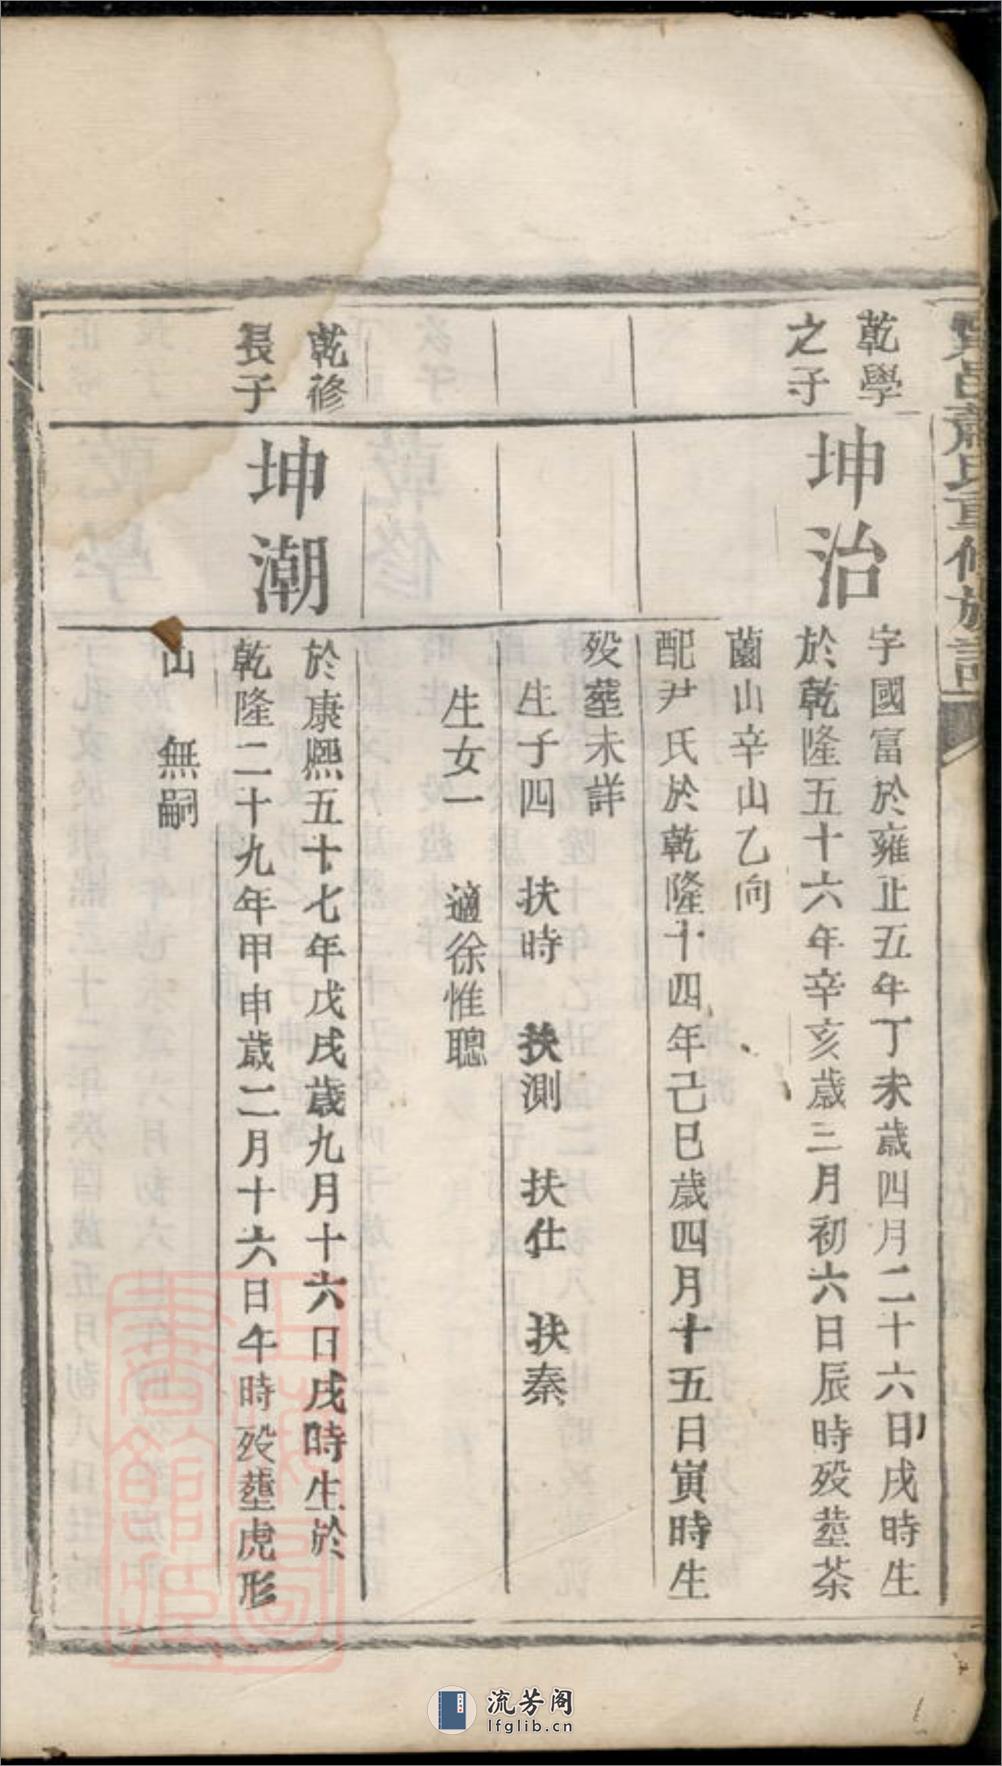 乾學
之子
坤治
字國富於雍正五年丁未歲四月二十六日戌時生
於乾隆五十六年辛亥歲三月初六日辰時殁塟茶
薗山辛山乙向
配尹氏於乾隆十四年己巳歲四月十五日寅時生
殁塟未詳
生子四 扶時 扶測 扶仕 扶秦
生女一 適徐惟聰
乾修
長子
坤潮
於康熈五十七年戊戌歲九月十六日戌時生於
乾隆二十九年甲申歲二月十六日午時殁塟虎形
山 無嗣
蕭氏重修族譜
流芳阁
lfglib.cn